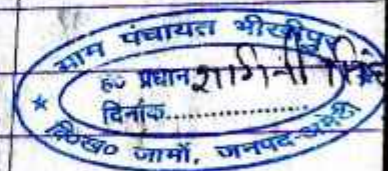 ग्राम पंचायत भीखीपुर
ह० प्रधान
दिनांक..................
★ वि०ख० जामों, जनपद-अमेठी